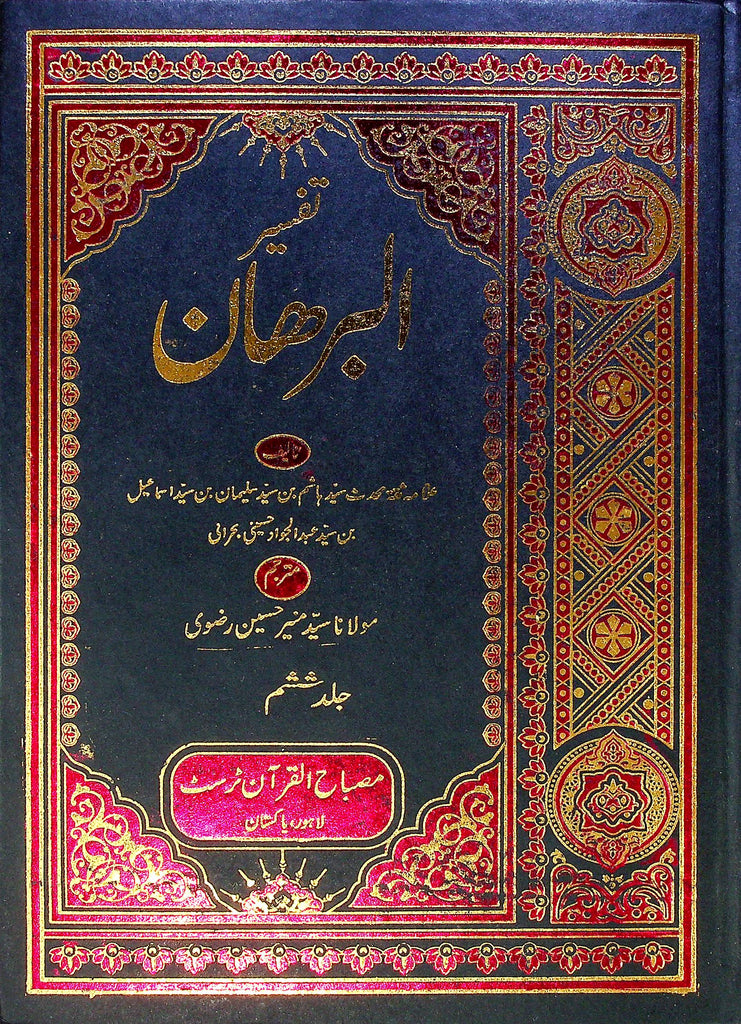 تفسیر
البرھان
تالیف
علامہ ثقۃ محدث سیّد ہاشم بن سیّد سلیمان بن سیّد اسماعیل
بن سیّد عبد الجواد حسینی بحرانی
مترجم
مولانا سیّد منیر حسین رضوی
جلد ششم
مصباح القرآن ٹرسٹ
لاہور، پاکستان